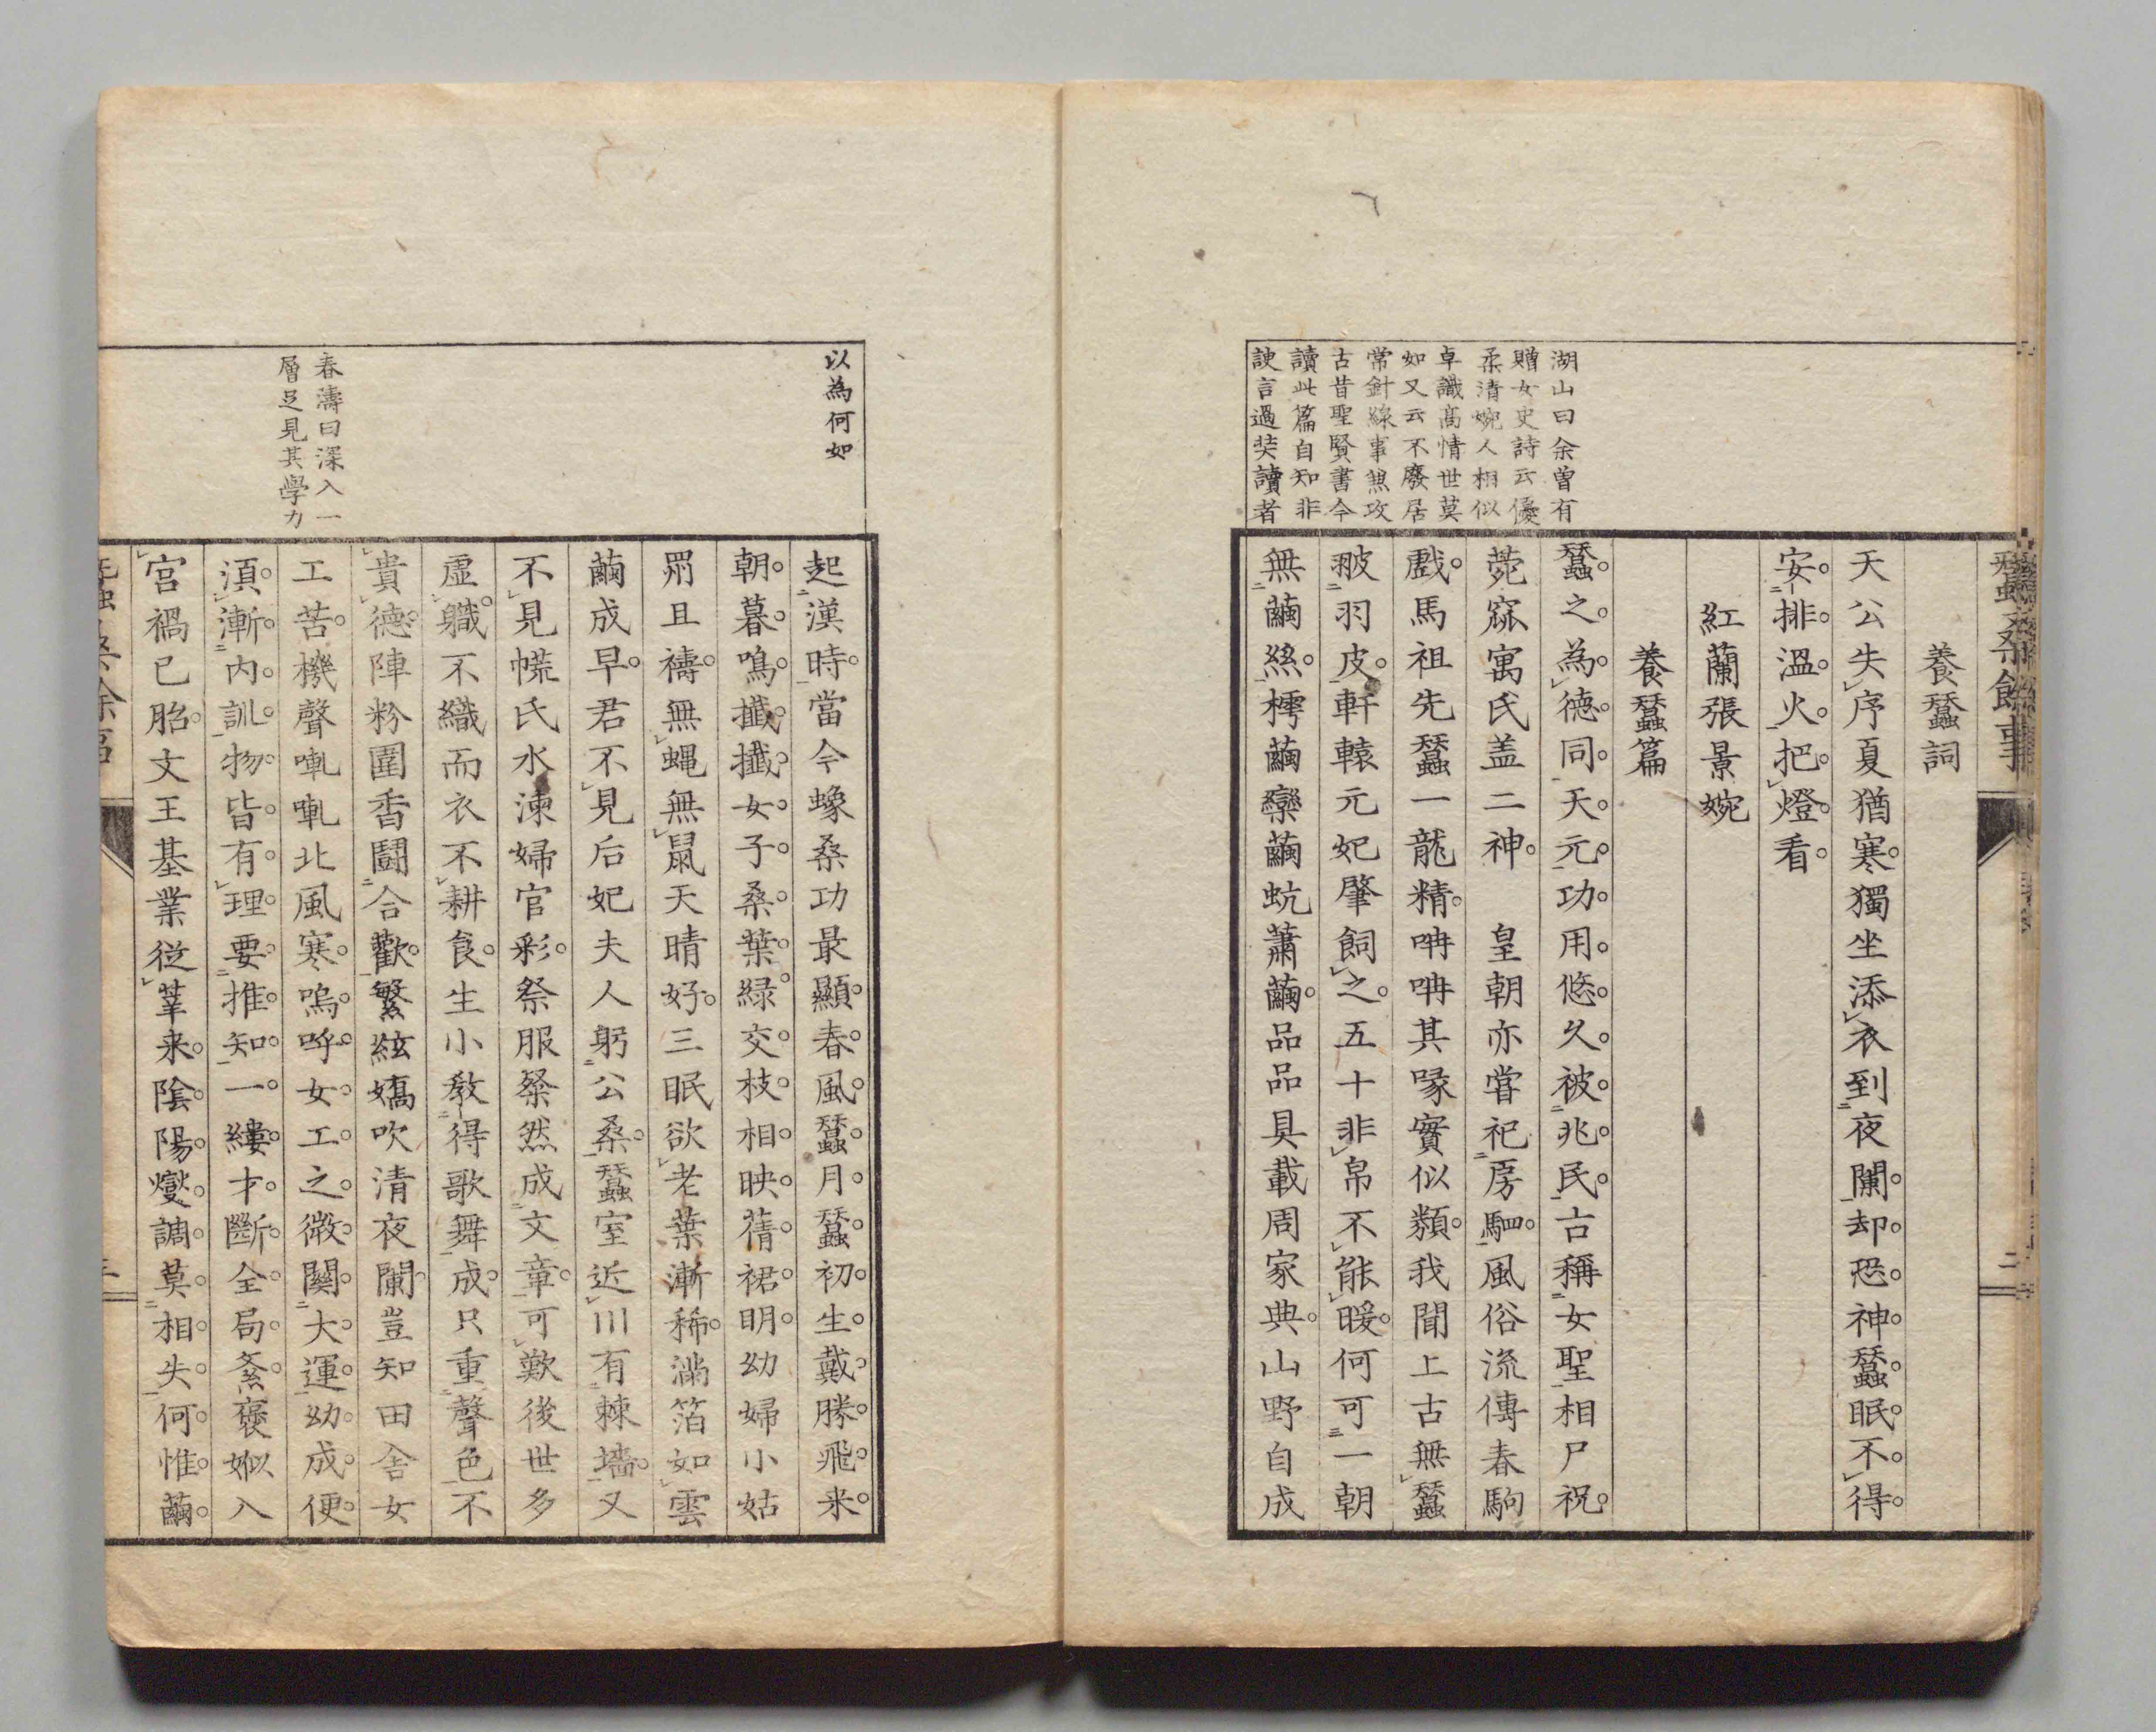 蠶桑餘事
二
養蠶詞
天公失序夏猶寒。獨坐添衣到夜闌。却。恐。神。蠶。眠。不。得。
安。排。溫。火。把。燈。看。
紅蘭張景婉
養蠶篇
蠶。之。為。德。同。天。元。功。用。悠。久。被。兆。民。古稱女聖相尸祝。
菀窳寓氏盖二神。　皇朝亦嘗祀房駟。風俗流傳春駒
戲。馬祖先蠶一龍精。呥呥其喙實似類。我聞上古無蠶
被羽皮。軒轅元妃肇飼之。五十非帛不能暖。何可一朝
無繭絲。樗繭欒繭蚢蕭繭。品品具載周家典。山野自成
湖山曰余曾有
贈女史詩云優
柔清婉人相似
卓識高情世莫
如又云不廢居
常針線事兼攻
古昔聖賢書今
讀此篇自知非
諛言過奘讀者
以為何如
起漢時。當今蠑桑功最顯。春。風。蠶。月。蠶。初。生。戴。勝。飛。来。
朝。暮。鳴。攕。攕。女。子。桑。葉。緑。交。枝。相。映。蒨。裙。明。幼婦小姑
罽且禱。無蝿無鼠天晴好。三眠欲老葉漸稀。滿箔如雲
繭成早。君不見后妃夫人躬公桑。蠶室近川有棘墻。又
不見㡛氏水湅婦官彩。祭服粲然成文章。可歎後世多
虛軄。不織而衣不耕食。生小敎得歌舞成。只重聲色不
貴德。陣粉圍香鬪合歡。繁絃嬌吹清夜闌。豈知田舍女
工苦。機聲軋軋北風寒。嗚。呼。女。工。之。微。關。大。運。幼。成。便。
湏。漸。内。訓。物。皆。有。理。要。推。知。一。縷。才。斷。全。局。紊。褒姒入
宮禍已胎。文王基業從莘来。陰。陽。燮。調。莫。相。失。何。惟。繭。
春濤曰深入一
層足見其學力